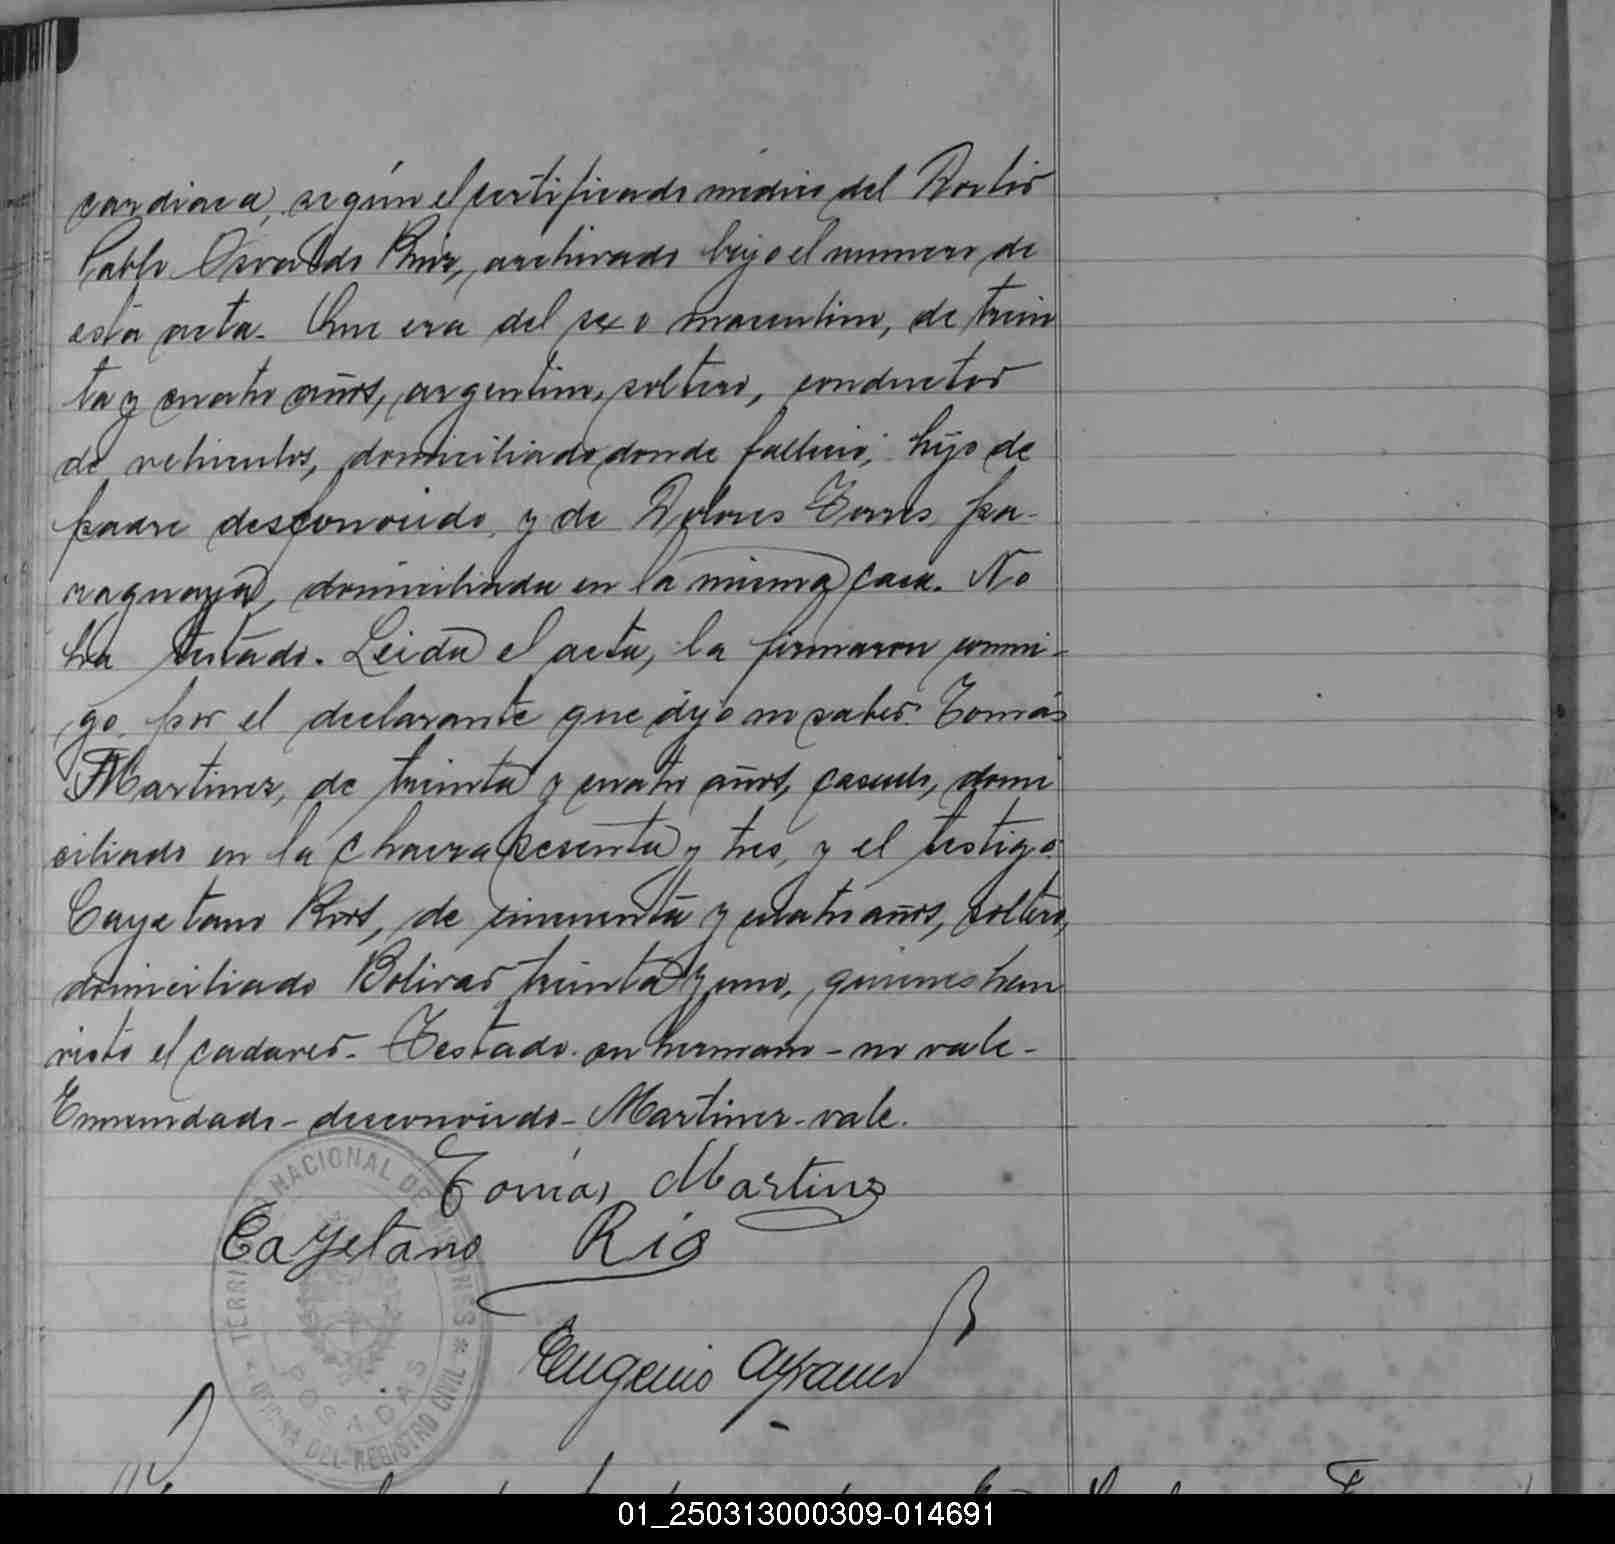 cardiaca, según el certificado médico del Doctor
Pablo Osvaldo Ruiz, archivado bajo el numero de
esta acta. Que era del sexo masculino, de trein
ta y cuatro años, argentino, soltero, conductor
de vehiculos, domiciliado donde falleció; hijo de
padre desconocido, y de Dolores Torres, pa-
raguaya, domiciliada en la misma casa. No
ha testado. Leida el acta, la firmaron conmi-
go, por el declarante que dijo no saber: Tomás
Martinez, de treinta y cuatro años, casado, domi
ciliado en la chacra sesenta y tres, y el testigo:
Cayetano Rios, de cincuenta y cuatro años, soltero,
domiciliado Bolivar treinta y uno, quienes han
visto el cadaver. Testado: su hermano - no vale -
Enmendado - desconocido - Martinez - vale.
Tomás Martinez
Cayetano Rios
Eugenio
TERRITORIO NACIONAL DE MISIONES
POSADAS
OFICINA DEL REGISTRO CIVIL
01_250313000309-014691